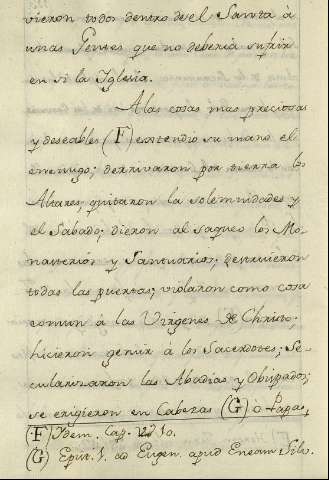 vieron todos dentro de el Santa à
unas Gentes que no deberia sufrir
en si la Iglesia.
A las cosas mas preciosas
y deseables (F) extendio su mano el
enemigo; derrivaron por tierra los
Altares, quitaron la solemnidades y
el Sabado; dieron al saqueo los Mo-
nasterios y Santuarios; destruieron
todas las puertas; violaron como cosa
comun à las Virgenes de Christo;
hicieron gemir à los Sacerdotes; Se-
cularizaron las Abadias y Obispados;
se erigieron en Cabezas (G) ò Papas,
(F) Idem. Cap. 10.
(G) Epist. 1. ad Eugen. apud Eneam Silv.